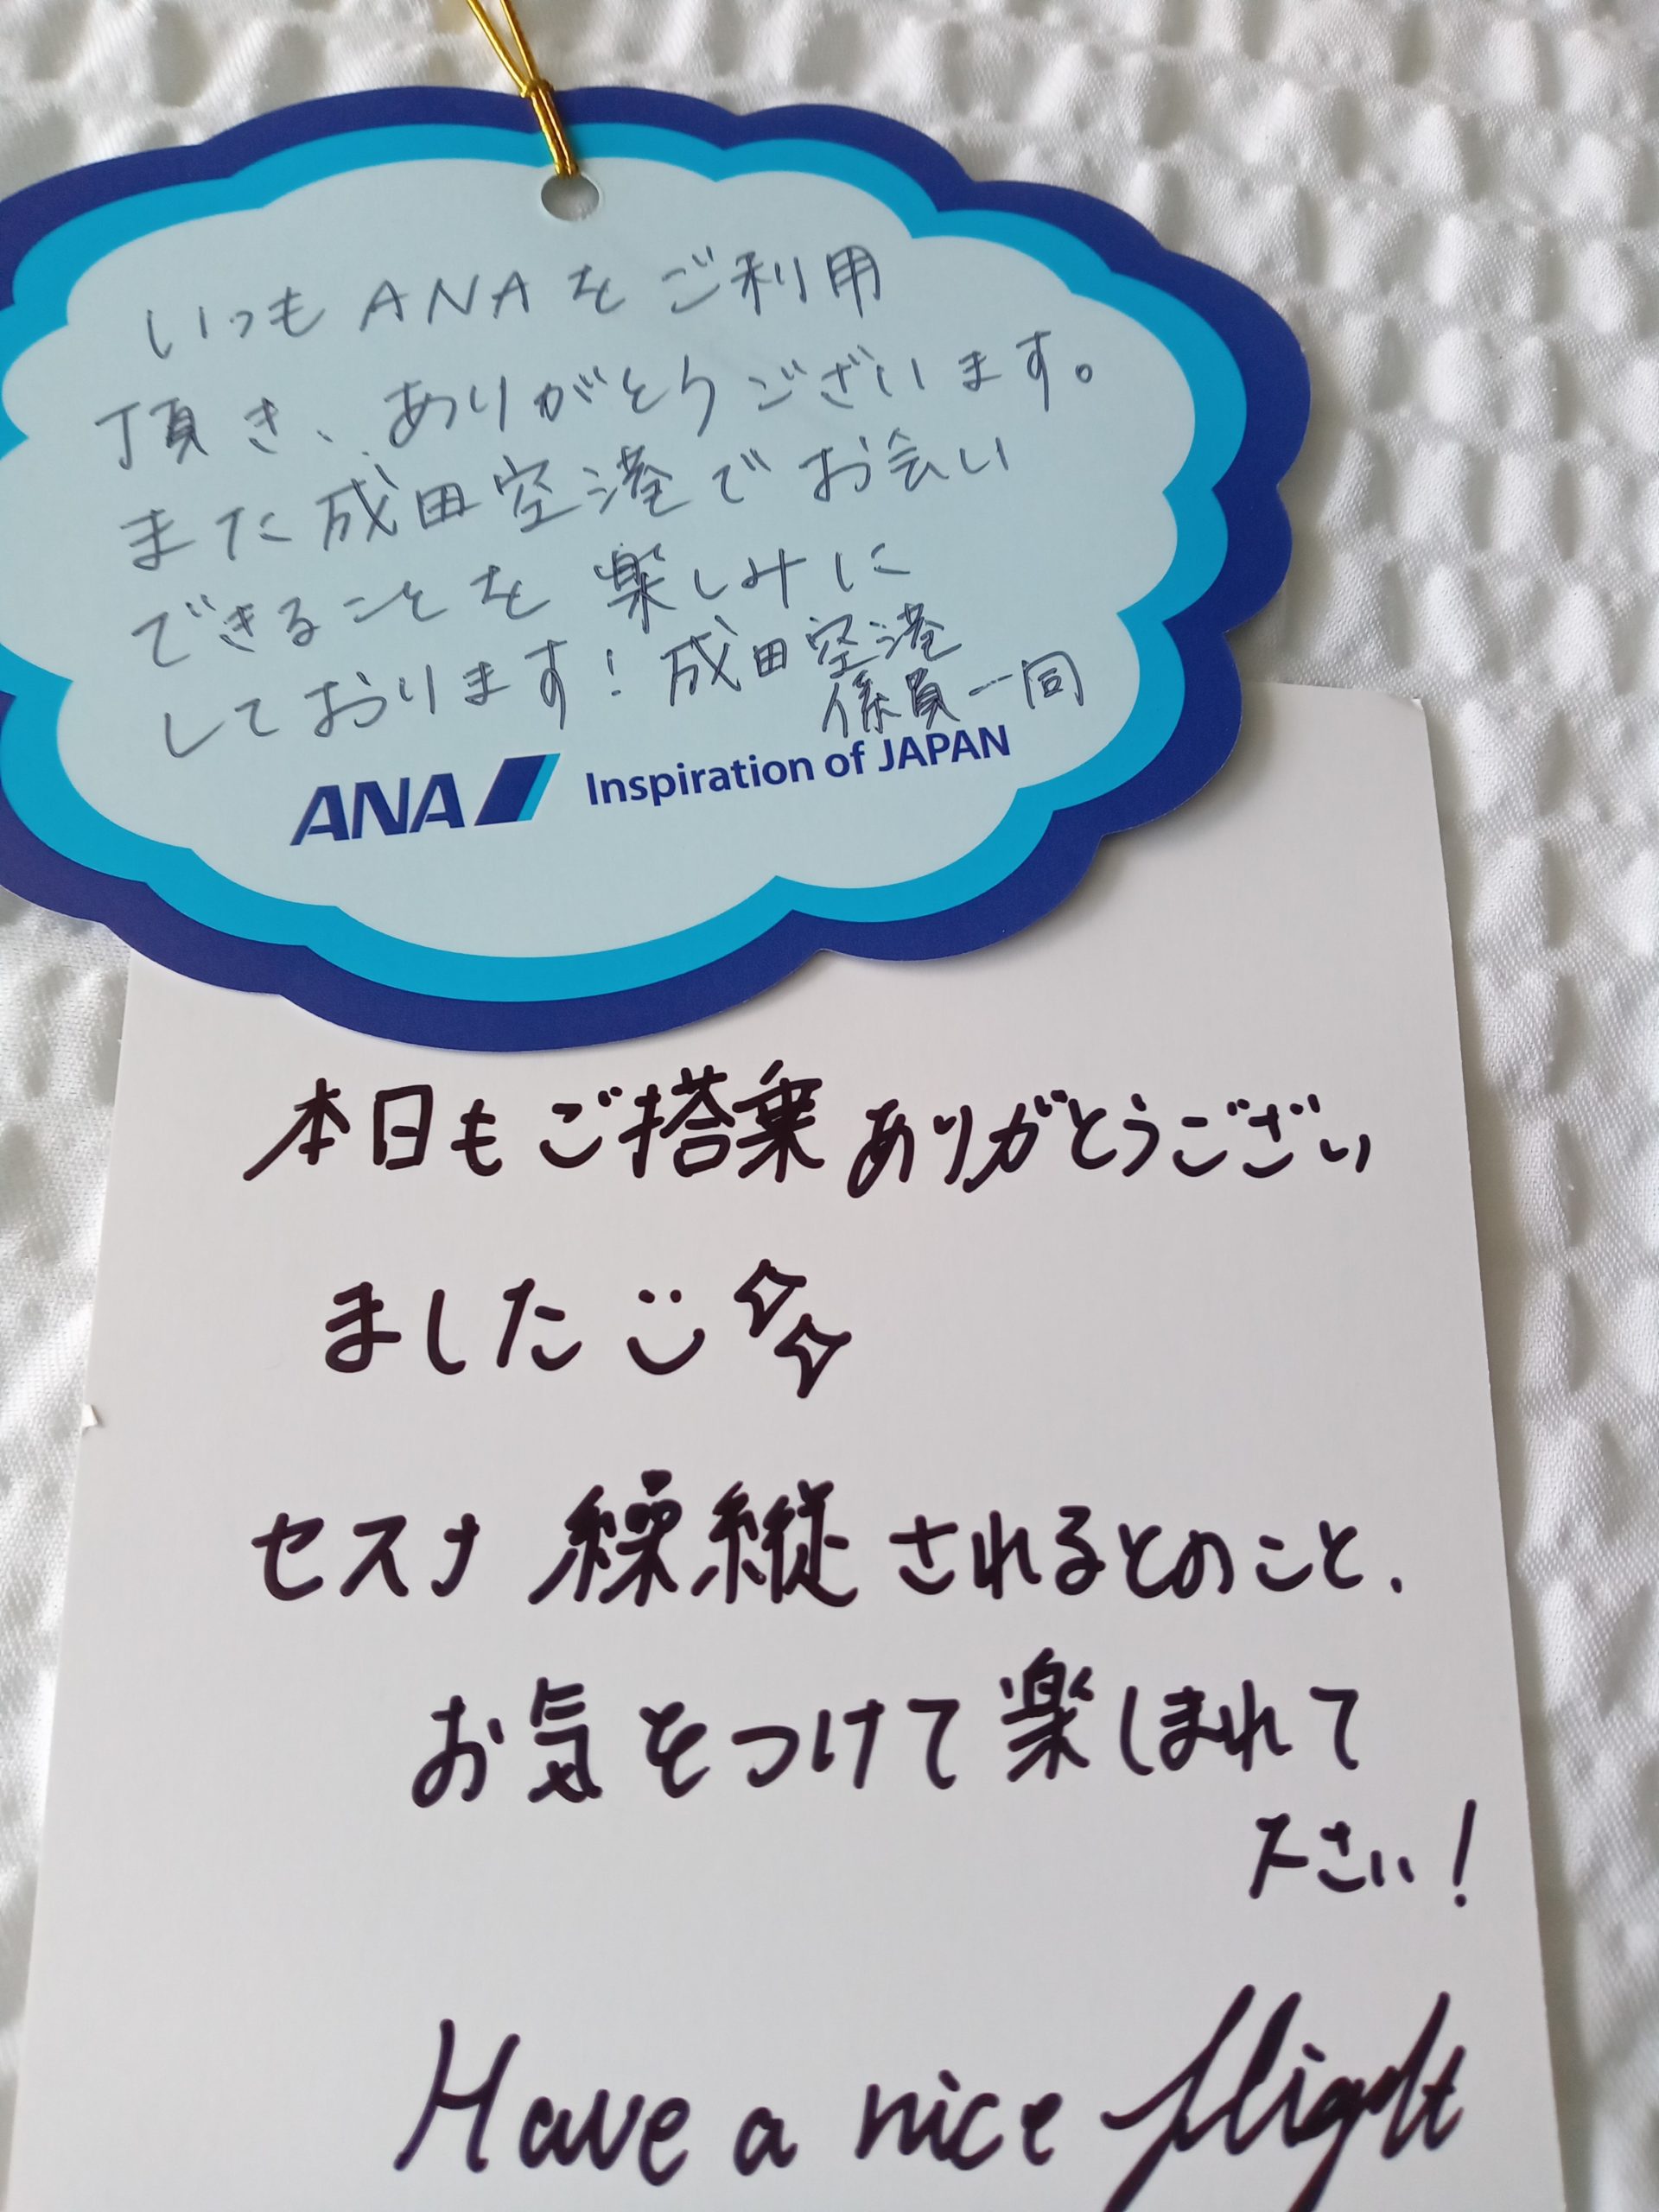 いつもANAをご利用
頂き、ありがとうございます。
また成田空港でお会い
できることを楽しみに
しております！成田空港
係員一同
ANA Inspiration of JAPAN
本日もご搭乗ありがとうござい
ました
セスナ操縦されるとのこと、
お気をつけて楽しまれて
下さい！
Have a nice flight